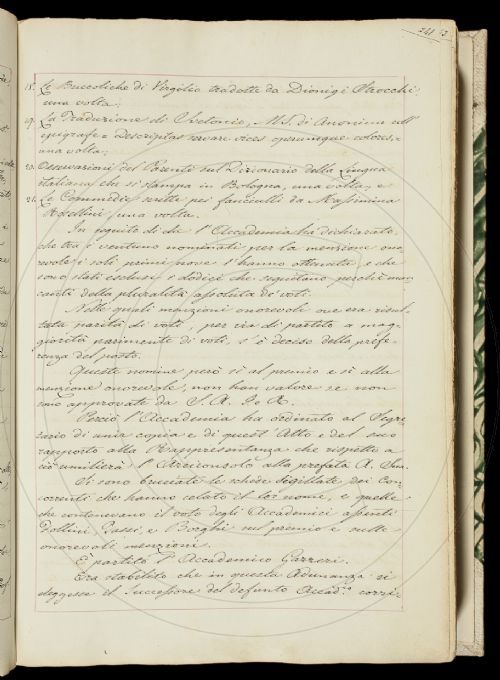 18. Le Buccoliche di Virgilio tradotte da Dionigi Strocchi;
una volta;
19. La Traduzione di Svetonio, MS. di Anonimo coll'
epigrafe = Descriptas servare vices operumque colores =
una volta;
20. Osservazioni del Parenti sul Dizionario della Lingua
italiana che si stampa in Bologna, una volta; e
21. Le Commedie scritte per fanciulli da Massimina
Rosellini, una volta.
In seguito di che l'Accademia ha dichiarato,
che tra i ventuno nominati per la menzione ono
revole i soli primi nove l'hanno ottenuta, e che
sono stati esclusi i dodici che seguitano perchè man
canti della pluralità assoluta di voti.
Nelle quali menzioni onorevoli ove era risul
tata parità di voti, per via di partito a mag
giorità parimente di voti, s'è deciso della prefe
renza del posto.
Queste nomine però sì al premio e sì alla
menzione onorevole, non han valore se non
sono approvate da S. A. I. e R.
Perciò l'Accademia ha ordinato al Segre
tario di una copia e di quest'Atto e del suo
rapporto alla Rappresentanza che rispetto a
ciò umilierà l'Arciconsolo alla prefata A. Sua.
Si sono bruciate le schede sigillate dei Con
correnti che hanno celato il lor nome, e quelle
che contenevano il voto degli Accademici assenti
Pollini, Bassi, e Borghi sul premio e sulle
onorevoli menzioni.
È partito l'Accademico Gazzeri.
Era stabilito che in questa Adunanza si
eleggesse il Successore del defunto Accad.co corri-